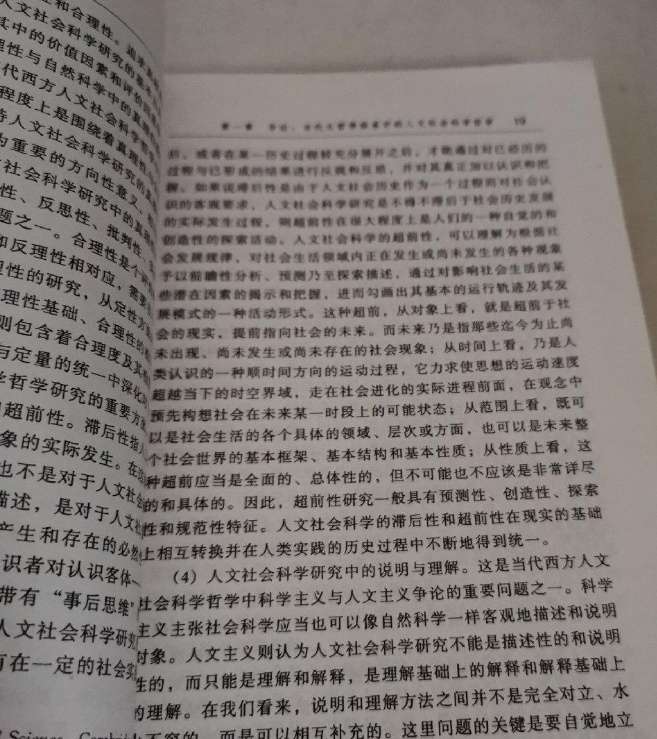 和合理性。
人文社会科学研究的
其中的价值因素和评价
理性与自然科学中的真理
代西方人文社会科学哲
程度上是围绕着真理
人文社会科学研究的
为重要的方向性意义
社会科学研究中的
性、反思性、批判性、
题之一。合理性是
和反理性相对应，需要
性的研究，从定性方
理性基础、合理性的
则包含着合理度及其
与定量的统一中深化
学哲学研究的重要方
超前性。滞后性指
象的实际发生。在
也不是对于人文社会
描述，是对于人文
产生和存在的必然
识者对认识客体
带有“事后思维”
人文社会科学研究
在一定的社会实
第一章 导论：当代大哲学体系中的人文社会科学哲学 19
后，或者在某一历史过程被充分展开之前，才能通过对已经历的
过程与已形成的结果进行反观和反思，并对其真正加以认识和把
握。如果说滞后性是由于人文社会历史作为一个过程而对社会认
识的客观要求，人文社会科学研究是不得不滞后于社会历史发展
的实际发生过程，则超前性在很大程度上是人们的一种自觉的和
创造性的探索活动。人文社会科学的超前性，可以理解为根据社
会发展规律，对社会生活领域内正在发生或尚未发生的各种现象
予以前瞻性分析、预测乃至探索描述，通过对影响社会生活的某
些潜在因素的揭示和把握，进而勾画出其基本的运行轨迹及其发
展模式的一种活动形式。这种超前，从对象上看，就是超前于社
会的现实，提前指向社会的未来。而未来乃是指那些迄今为止尚
未出现、尚未发生或尚未存在的社会现象；从时间上看，乃是人
类认识的一种顺时间方向的运动过程，它力求使思想的运动速度
超越当下的时空界域，走在社会进化的实际进程前面，在观念中
预先构想社会在未来某一时段上的可能状态；从范围上看，既可
以是社会生活的各个具体的领域、层次或方面，也可以是未来整
个社会世界的基本框架、基本结构和基本性质；从性质上看，这
种超前应当是全面的、总体性的，但不可能也不应该是非常详尽
的和具体的。因此，超前性研究一般具有预测性、创造性、探索
性和规范性特征。人文社会科学的滞后性和超前性在现实的基础
上相互转换并在人类实践的历史过程中不断地得到统一。
（4）人文社会科学研究中的说明与理解。这是当代西方人文
社会科学哲学中科学主义与人文主义争论的重要问题之一。科学
主义主张社会科学应当也可以像自然科学一样客观地描述和说明
对象。人文主义则认为人文社会科学研究不能是描述性的和说明
性的，而只能是理解和解释，是理解基础上的解释和解释基础上
的理解。在我们看来，说明和理解方法之间并不是完全对立、水
不容的，而是可以相互补充的。这里问题的关键是要自觉地立